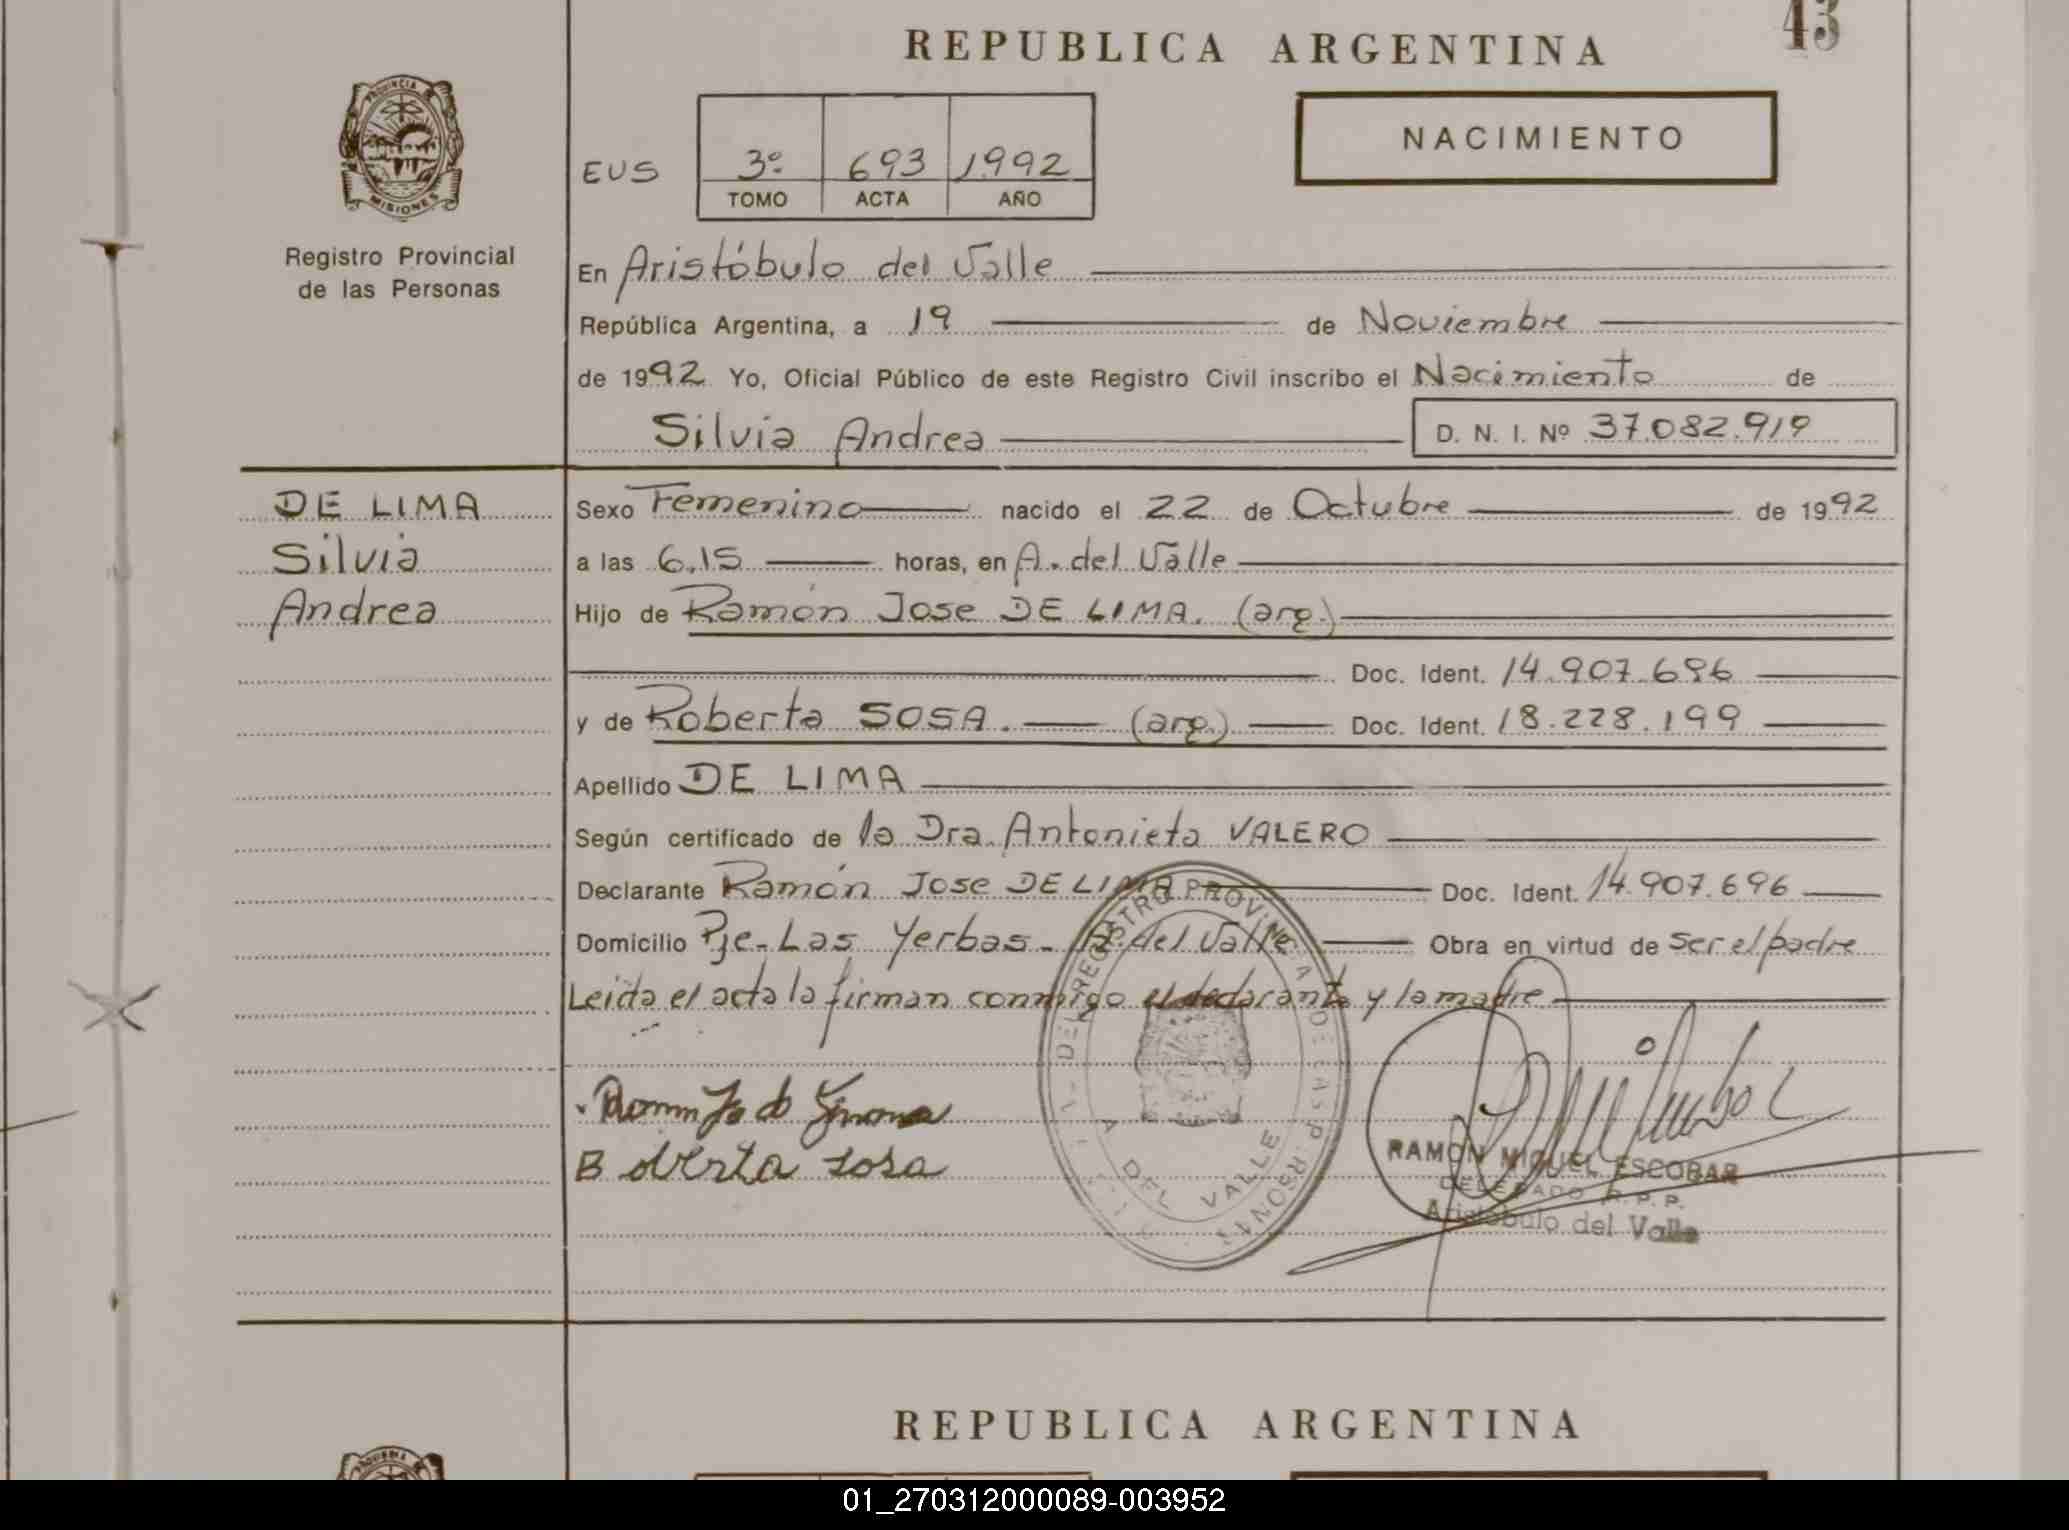 43
REPUBLICA ARGENTINA
PROVINCIA
MISIONES
NACIMIENTO
EUS 3º 693 1992
TOMO ACTA AÑO
Registro Provincial
de las Personas
En Aristóbulo del Valle
República Argentina, a 19 de Noviembre
de 1992 Yo, Oficial Público de este Registro Civil inscribo el Nacimiento de
Silvia Andrea D. N. I. Nº 37.082.919
DE LIMA
Silvia
Andrea
Sexo Femenino nacido el 22 de Octubre de 1992
a las 6.15 horas, en A. del Valle
Hijo de Ramón Jose DE LIMA. (arg.)
Doc. Ident. 14.907.696
y de Roberta SOSA. (arg.) Doc. Ident. 18.228.199
Apellido DE LIMA
Según certificado de la Dra. Antonieta VALERO
Declarante Ramón Jose DE LIMA Doc. Ident. 14.907.696
Domicilio Pje. Las Yerbas - A. del Valle Obra en virtud de ser el padre
Leida el acta la firman conmigo el declarante y la madre
Roberta sosa
A DEL VALLE
RAMON MIGUEL ESCOBAR
DELEGADO R. P. P.
Aristóbulo del Valle
REPUBLICA ARGENTINA
01_270312000089-003952